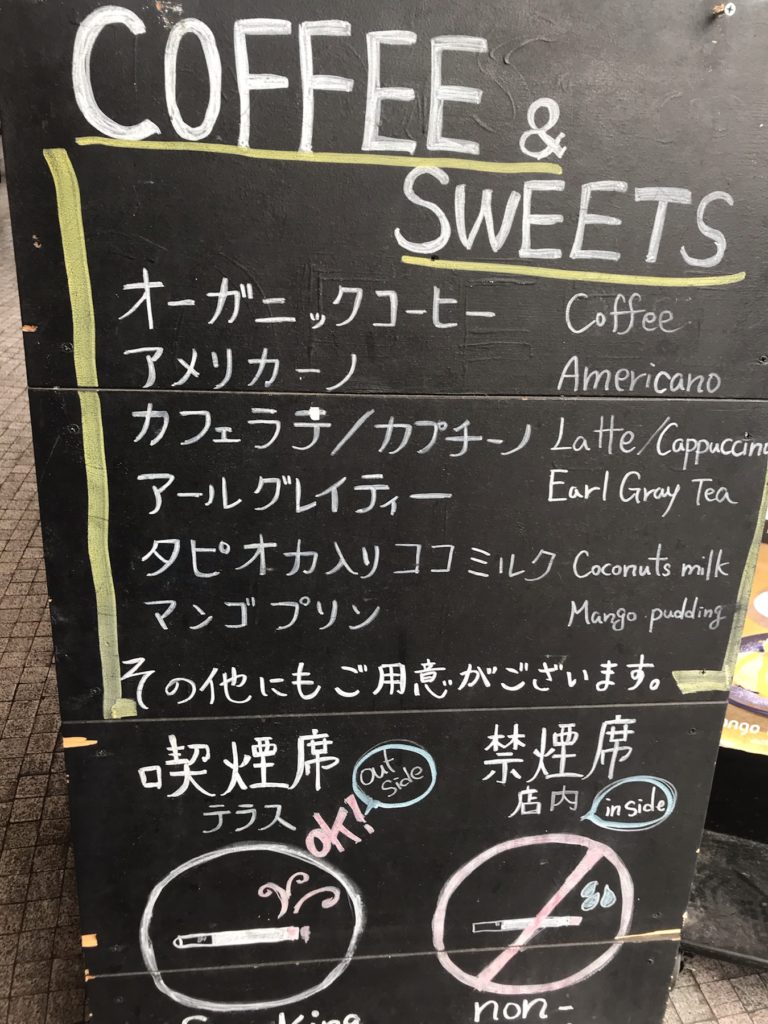 COFFEE &
SWEETS
オーガニックコーヒー Coffee
アメリカーノ Americano
カフェラテ/カプチーノ Latte/Cappuccino
アールグレイティー Earl Gray Tea
タピオカ入りココミルク Coconuts milk
マンゴプリン Mango pudding
その他にもご用意がございます。
喫煙席 out side 禁煙席
テラス OK! 店内 inside
Smoking non-